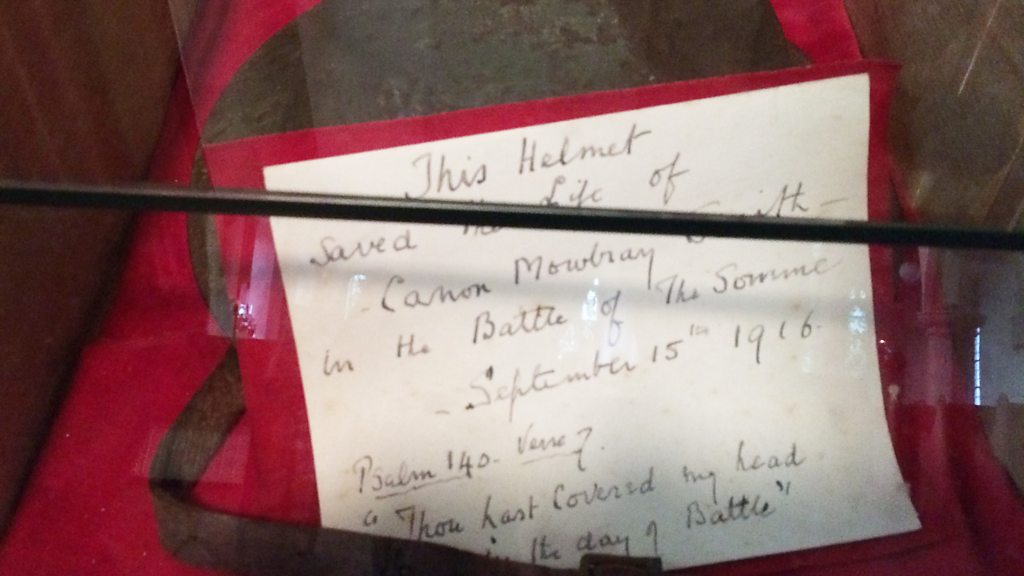 This Helmet
saved the Life of
- Canon Mowbray Smith -
in the Battle of The Somme
- September 15th 1916.
Psalm 140. Verse 7.
"Thou hast Covered my head
in the day of Battle"